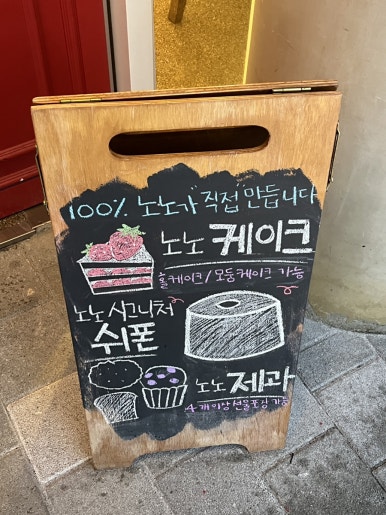 100% 노노가 "직접" 만듭니다
노노 케이크
홀케이크/모둠케이크 가능
노노 시그니처
쉬폰
노노 제과
4개 이상 선물포장 가능